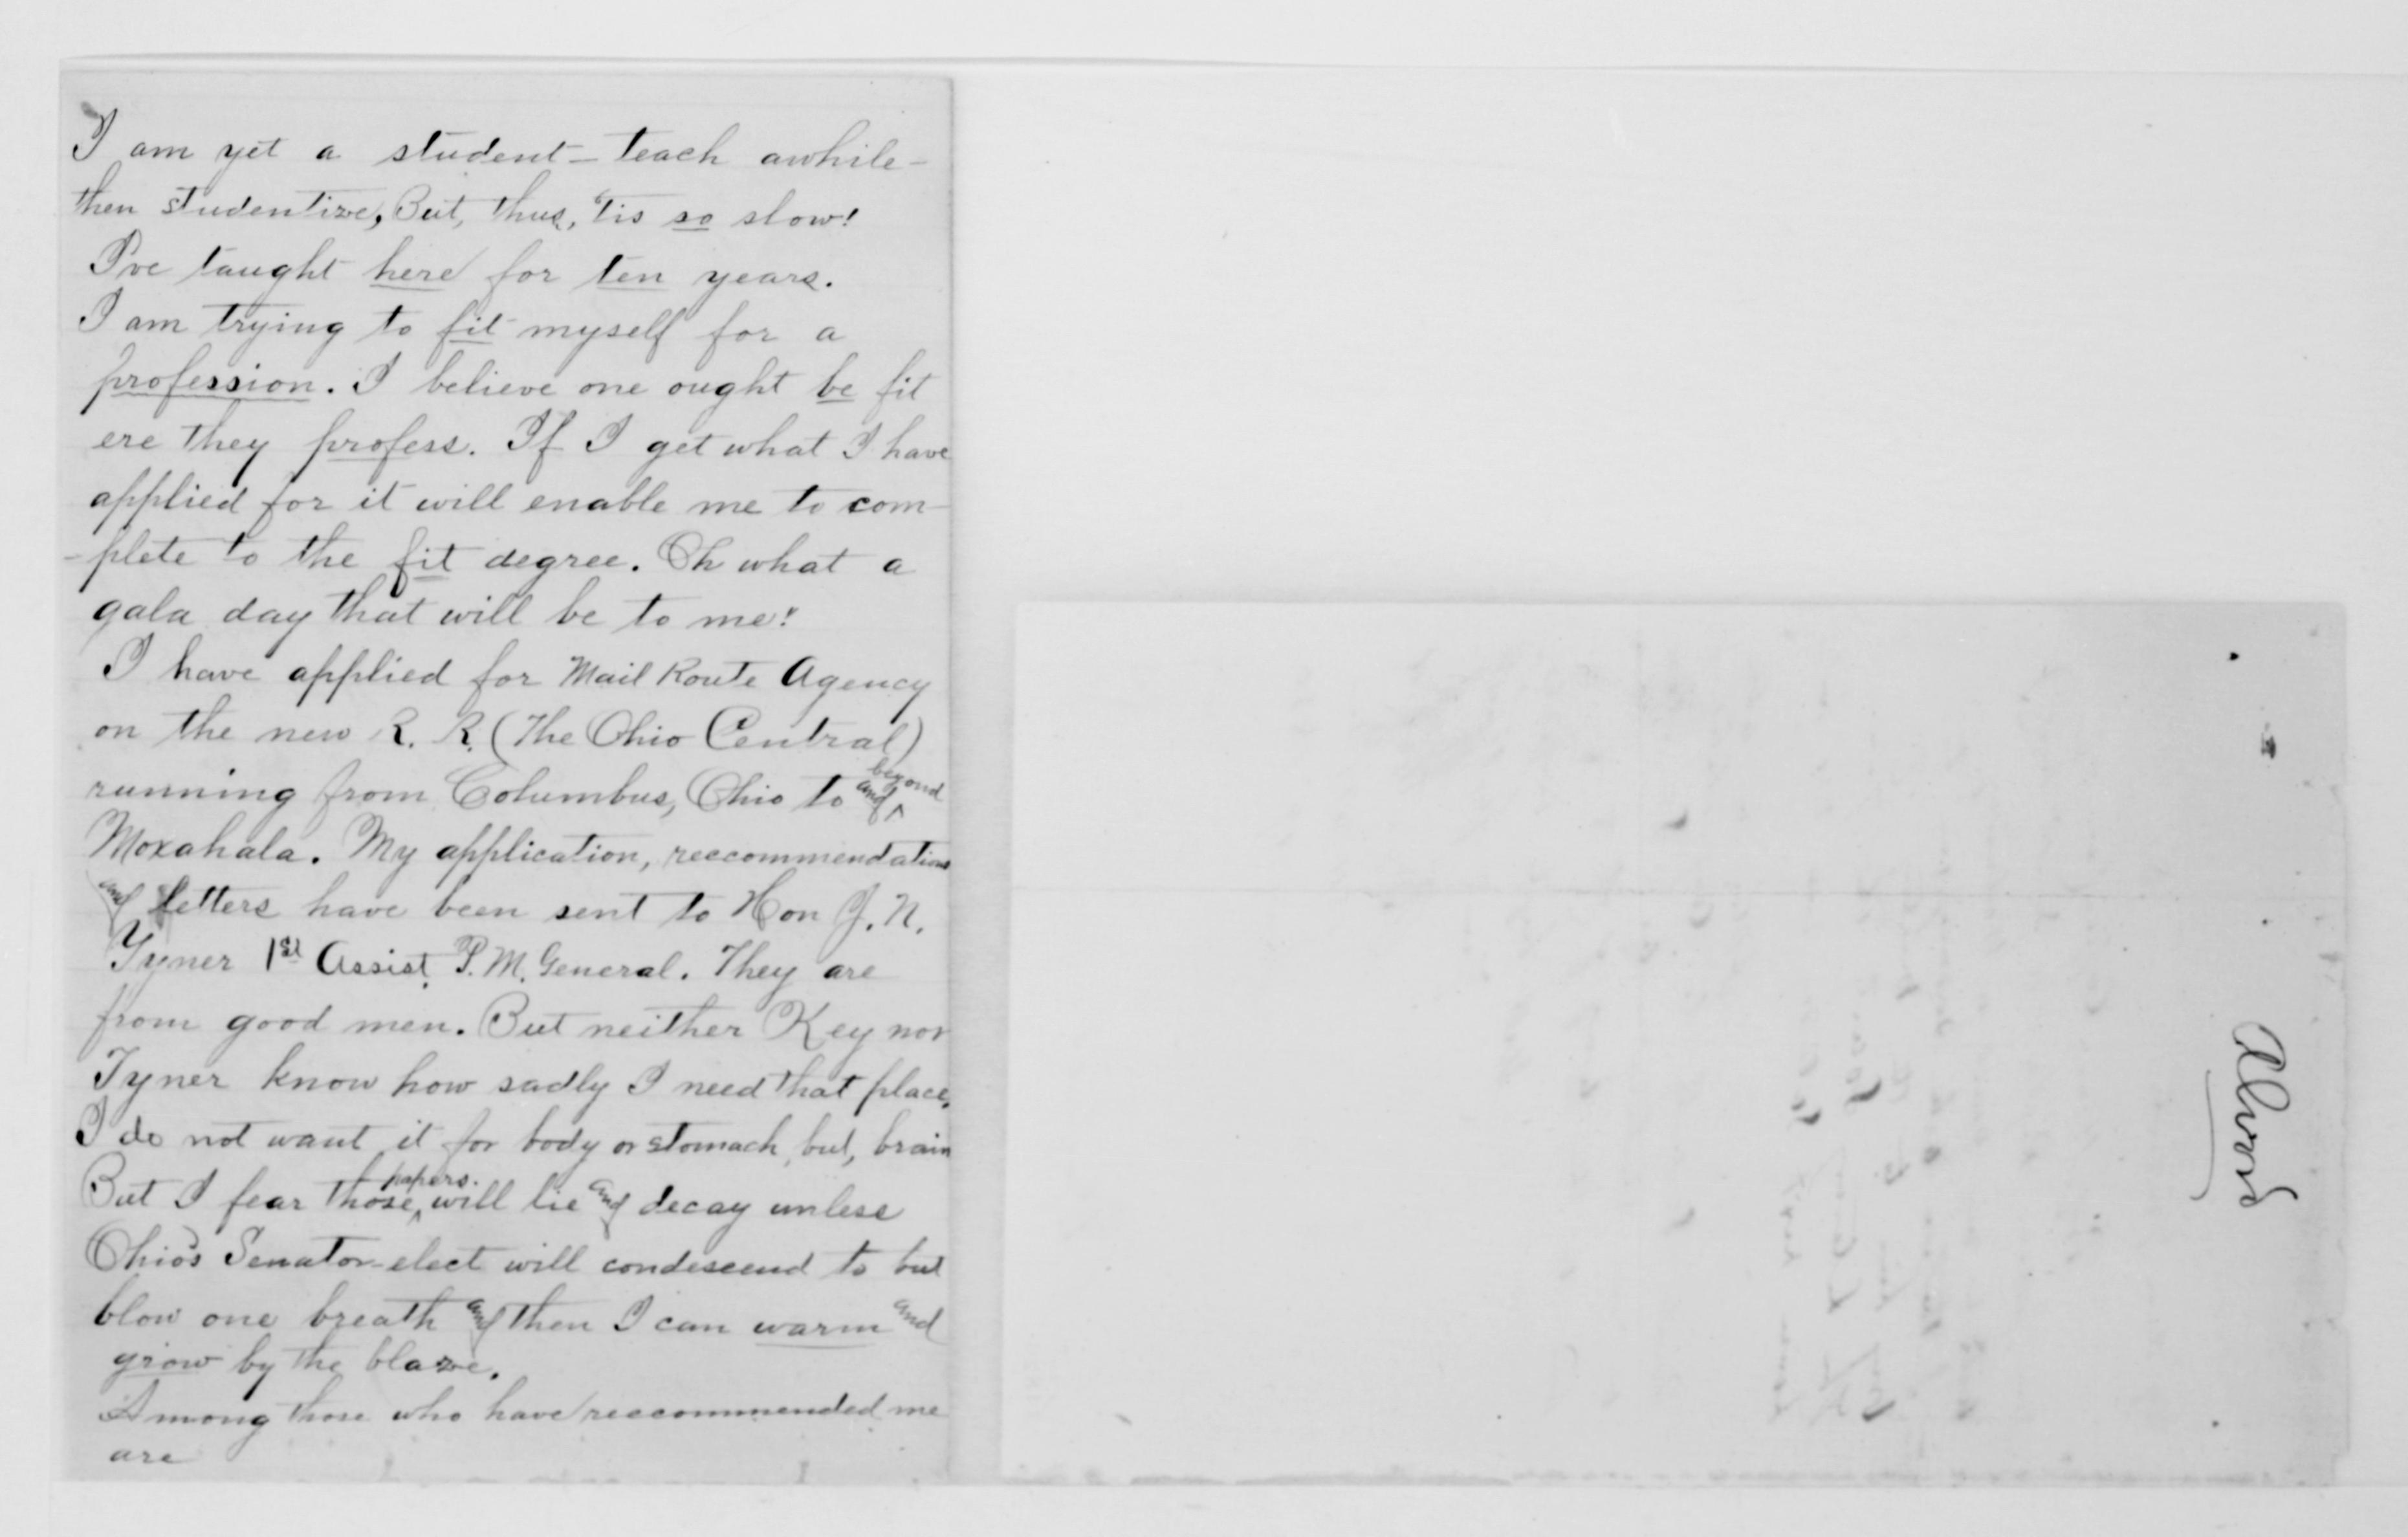 I am yet a student – teach awhile –
then studentize, But, thus, 'tis so slow!
I've taught here for ten years.
I am trying to fit myself for a
profession. I believe one ought be fit
ere they profess. If I get what I have
applied for it will enable me to com-
-plete to the fit degree. Oh what a
gala day that will be to me!
I have applied for Mail Route Agency
on the new R. R. (The Ohio Central)
running from Columbus, Ohio to and beyond
Moxahala. My application, reccommendations
and letters have been sent to Hon J. N.
Tyner 1st Assist. P. M. General. They are
from good men. But neither Key nor
Tyner know how sadly I need that place.
I do not want it for body or stomach, but, brain
But I fear those papers. will lie and decay unless
Ohio's Senator-elect will condescend to but
blow one breath and then I can warm and
grow by the blaze.
Among those who have reccommended me
are
Alvord